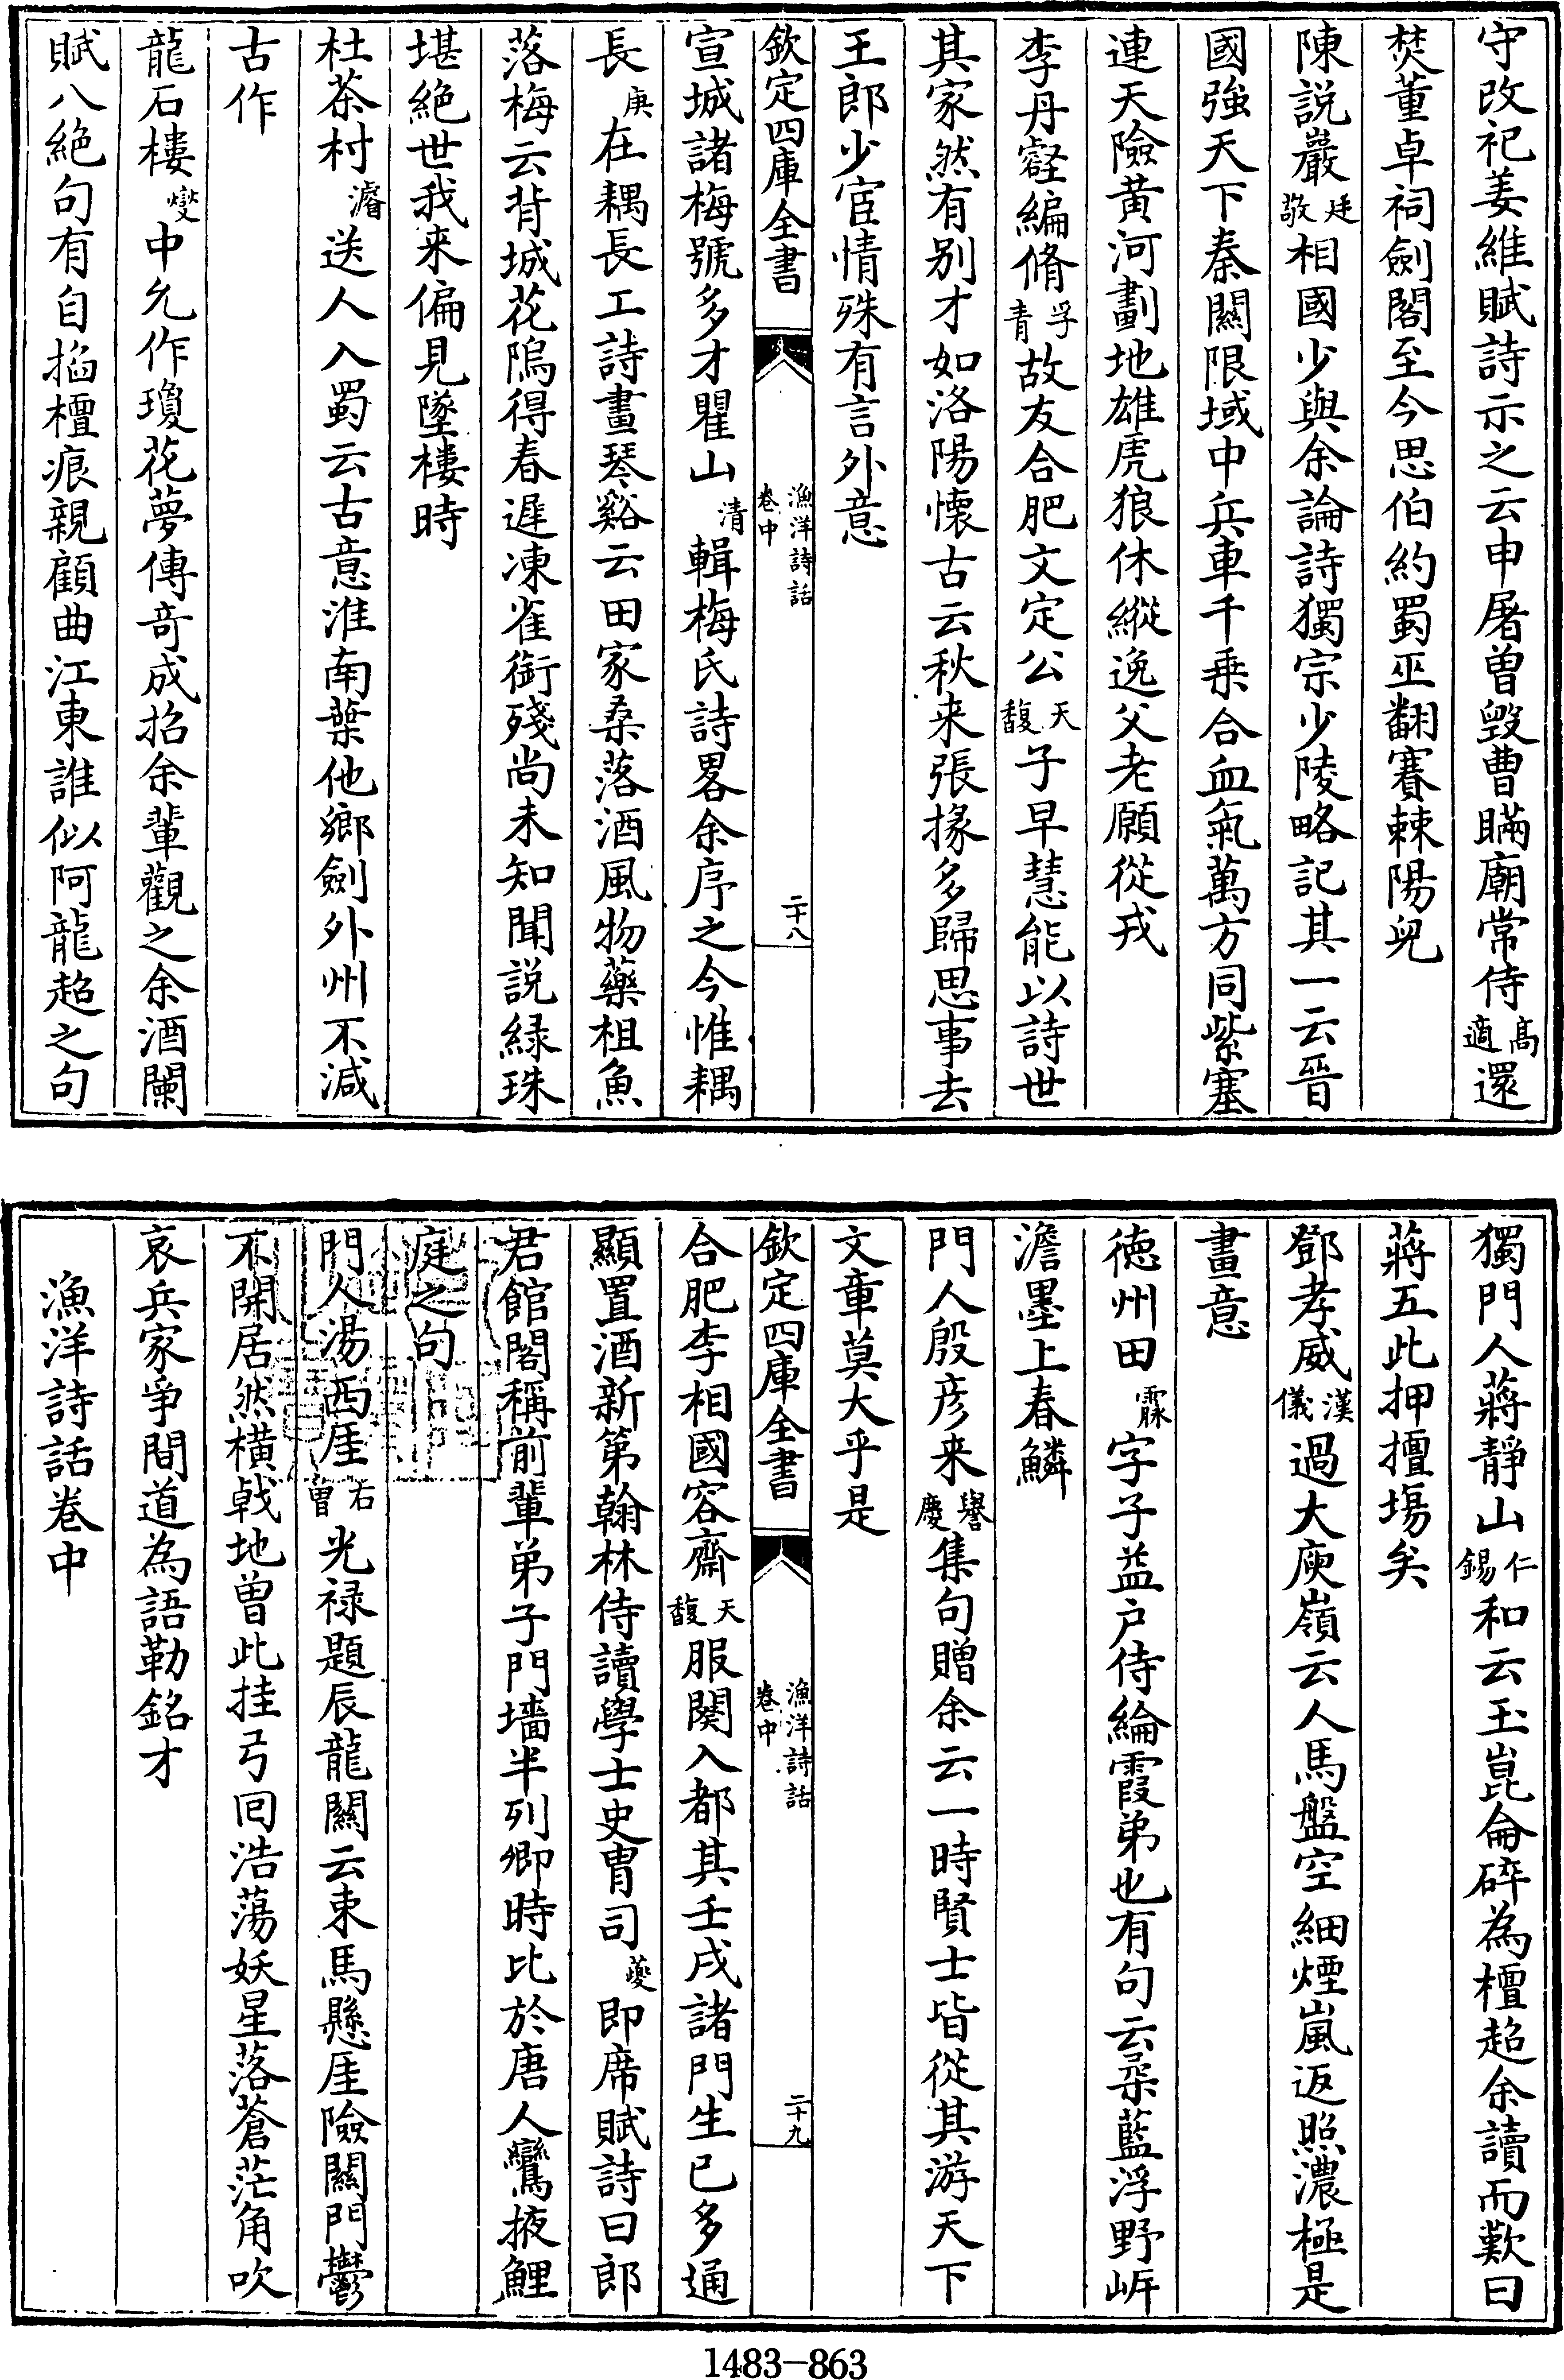 守改祀姜維賦詩示之云申屠曾毀曹瞞廟常侍高適還
焚董卓祠劍閣至今思伯約蜀巫翻賽棘陽兒
陳說巖廷敬相國少與余論詩獨宗少陵略記其一云晉
國強天下秦關限域中兵車千乗合血氣萬方同紫塞
連天險黃河劃地雄虎狼休縱逸父老願從戎
李丹壑編脩孚青故友合肥文定公天馥子早慧能以詩世
其家然有别才如洛陽懷古云秋来張掾多歸思事去
王郎少宦情殊有言外意
欽定四庫全書
漁洋詩話
卷中
二十八
宣城諸梅號多才瞿山清輯梅氏詩畧余序之今惟耦
長庚在耦長工詩畫琴谿云田家桑落酒風物藥租魚
落梅云背城花隖得春遲凍雀銜殘尚未知聞説緑珠
堪絶世我来偏見墜樓時
杜茶村濬送人入蜀云古意淮南葉他鄉劍外州不減
古作
龍石樓燮中允作瓊花夢傳奇成招余輩觀之余酒闌
賦八絶句有自掐檀痕親顧曲江東誰似阿龍超之句
獨門人蔣靜山仁錫和云玉崑侖碎為檀超余讀而歎曰
蔣五此押擅塲矣
鄧孝威漢儀過大庾嶺云人馬盤空細煙嵐返照濃極是
畫意
徳州田霢字子益户侍綸霞弟也有句云朶藍浮野㟁
澹墨上春鱗
門人殷彦来譽慶集句贈余云一時賢士皆從其游天下
文章莫大乎是
欽定四庫全書
漁洋詩話
卷中
二十九
合肥李相國容齋天馥服闋入都其壬戌諸門生已多通
顯置酒新第翰林侍讀學士史冑司夔即席賦詩曰郎
君館閣稱前輩弟子門墻半列卿時比於唐人鸞掖鯉
庭之句
門人湯西厓右曽光禄題辰龍關云束馬懸厓險關門鬱
不開居然横戟地曽此挂弓囘浩蕩妖星落蒼茫角吹
哀兵家爭間道為語勒銘才
漁洋詩話卷中
1483-863